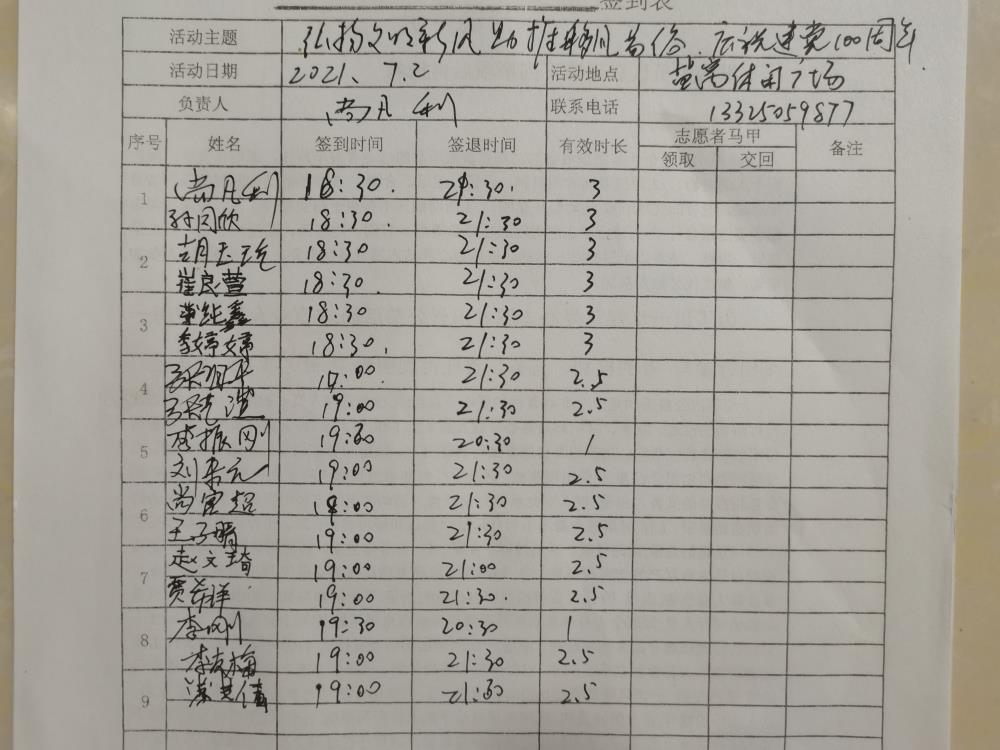 签到表
活动主题 弘扬文明新风 助推移风易俗、庆祝建党100周年
活动日期 2021、7.2 活动地点 盐窝休闲广场
负责人 尚凡利 联系电话 13325059877
序号 姓名 签到时间 签退时间 有效时长 志愿者马甲 备注
领取 交回
1 尚凡利 18:30. 21:30. 3
18:30. 21:30 3
2 胡玉 18:30 21:30 3
崔良萱 18:30. 21:30 3
3 18:30 21:30 3
李婷婷 18:30. 21:30 3
4 :00. 21:30 2.5
19:00 21:30 2.5
5 李振刚 19:30 20:30 1
刘来元 19:00 21:30 2.5
6 尚宝超 :00 21:30 2.5
王子晴 19:00 21:30 2.5
7 赵文琦 19:00 21:00 2.5
贾希祥 19:00 21:30. 2.5
8 李刚 19:30 20:30 1
李友梅 19:00 21:30 2.5
9 19:00 21:30 2.5